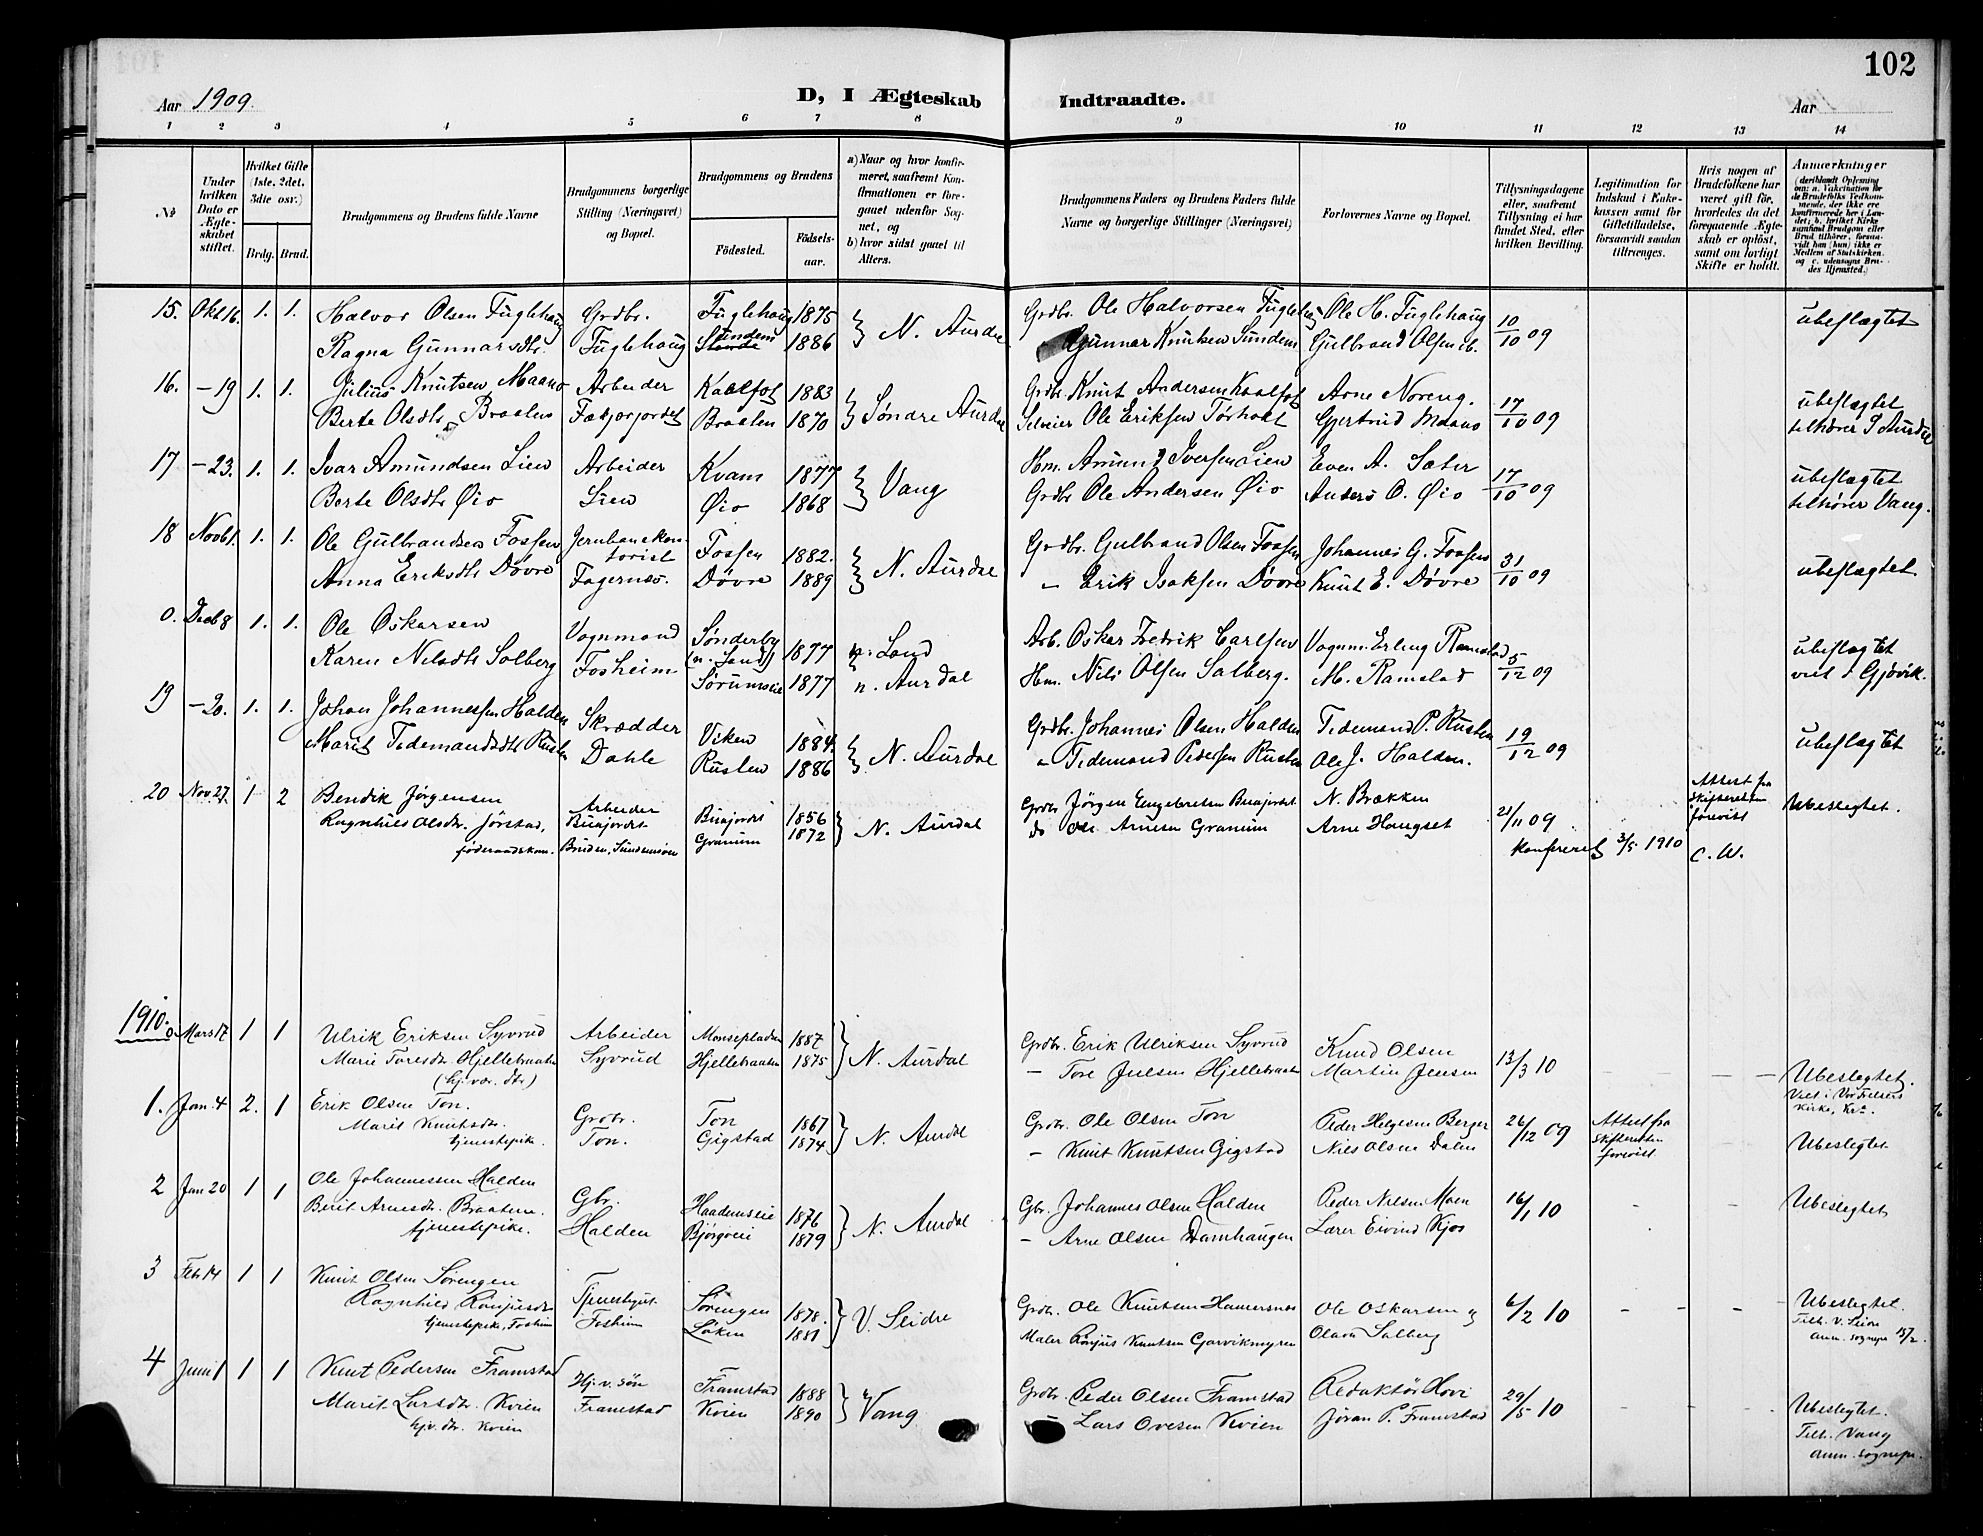 102
Aar 1909.
D, I Ægteskab Indtraadte.
Aar
1 2 3 4 5 6 7 8 9 10 11 12 13 14
No
Under hvilken Dato er Ægteskabet stiftet.
Hvilket Gifte (1ste, 2det, 3die osv.)
Brdg. Brud.
Brudgommens og Brudens fulde Navne
Brudgommens borgerlige Stilling (Næringsvei) og Bopæl.
Brudgommens og Brudens
Födested.
Födselsaar.
a) Naar og hvor konfirmeret, saafremt Konfirmationen er foregaaet udenfor Sognet, og
b) hvor sidst gaaet til Alters.
Brudgommens Faders og Brudens Faders fulde Navne og borgerlige Stillinger (Næringsvei)
Forlovernes Navne og Bopæl.
Tillysningsdagene eller, saafremt Tillysning ei har fundet Sted, efter hvilken Bevilling.
Legitimation for Indskud i Enkekassen samt for Giftetilladelse, forsaavidt saadan tiltrænges.
Hvis nogen af Brudefolkene har været gift för, hvorledes da det foregaaende Ægteskab er oplöst, samt om lovligt Skifte er holdt.
Anmærkninger
15. Okt 16. 1. 1. Halvor Olsen Fuglehaug Grdbr. Fuglehaug 1875 N. Aurdal Grdbr. Ole Halvorsen Fuglehaug Ole H. Fuglehaug 10/10 09 ubeslægtet
Ragna Gunnarsdtr. Fuglehaug Sundem 1886 Gunnar Knutsen Sundem Gulbrand Olsen ib.
16. -19 1. 1. Julius Knutsen Maano Arbeider Kaalfot 1883 Søndre Aurdal Grdbr. Knut Andersen Kaalfot Arne Noreng. 17/10 09 ubeslægtet
Berte Olsdtr. Braaten 1870 Selveier Ole Eriksen Gjertrud Maano tilhører S Aurdal
17 -23. 1. 1. Ivar Amundsen Lien Arbeider Kvam 1877 Vang Hm. Amund Iversen Lien Even A. Sæter 17/10 09 ubeslægtet
Berte Olsdtr Øio Lien Øio 1868 Grdbr Ole Andersen Øio Anders O. Øio tilhører Vang.
18 Novb 1. 1. 1. Ole Gulbrandsen Fossen Jernbanekontorist Fossen 1882. N. Aurdal Grdbr. Gulbrand Olsen Fossen Johannes G. Fossen 31/10 09 ubeslægtet
Anna Eriksdtr Døvre Fagernes. Døvre 1889 - Erik Isaksen Døvre Knut E. Døvre
0. Decb 8 1. 1. Ole Oskarsen Vognmand Sønderby (n. Land) 1877 n. Land Arb. Oskar Fredrik Carlsen Vognm. Erling Ramstad 5/12 09 ubeslægtet
Karen Nilsdtr Solberg Fosheim Sørumseie 1877 n. Aurdal Hm. Nils Olsen Solberg. M. Ramstad viet i Gjøvik.
19 -20. 1. 1. Johan Johannessen Halden Skrædder Viken 1884. N. Aurdal Grdbr. Johannes Olsen Halden Tidemand P. Rusten 19/12 09 ubeslægtet
Marit Tidemandsdtr Rusten Dahle Rusten 1886 " Tidemand Pedersen Rusten Ole J. Halden.
20 Nov 27. 1 2 Bendik Jørgensen Arbeider Buajordet 1856 N. Aurdal Grdbr Jörgen Engebretsen Buajordet N. Brækken 21/11 09 Attest fra skifteretten forevist Ubeslegtet.
Ragnhild Olsdtr. Jørstad, Buajordet Granum 1872 do Ole Arnesen Granum Arne Haugset
føderaadskone. Bruden, Sundemsøen Konfereret 3/5 1910 C. W.
1910.
0. Mars 17 1 1 Ulrik Eriksen Syvrud Arbeider Monsepladsen 1887 N. Aurdal Grdbr. Erik Ulriksen Syvrud Knud Olsen 13/3 10 Ubeslegtet.
Marie Toresdtr. Hjellebraaten Syvrud Hjellebraaten 1875 - Tore Juelsen Hjellebraaten Martin Jensen Viet i Vor Frelsers Kirke, Kra.
(hj. vær. dtr)
1. Jan. 4 2. 1 Erik Olsen Ton. Grdbr. Ton 1867 N. Aurdal Grdbr. Ole Olsen Ton Peder Helgesen Berger 26/12 09 Attest fra skifteretten forevist Ubeslegtet
Marit Knutsdtr. Ton. Gigstad 1874 - Knut Knutsen Gigstad Niels Olsen Dalen
tjenestepike.
2 Jan 20 1 1 Ole Johannessen Halden Gbr. Haademseie 1876 N. Aurdal Gbr. Johannes Olsen Halden Peder Nilsen Moen 16/1 10 Ubeslegtet
Berit Arnesdtr. Braaten. Halden Bjørgoeie 1879 - Arne Olsen Damhaugen Lærer Eivind Kjos
tjenestepike.
3 Feb 14 1 1 Knut Olsen Sørengen Tjenestegut. Sørengen 1878. V. Slidre Grdbr. Ole Knutsen Hamersnes Ole Oskarsen og 6/2 10 Ubeslegtet.
Ragnhild Ronjusdtr. Fosheim Løken 1881 Maler Ronjus Knutsen Garvikmyren Olava Solberg Tilh. V. Slidre
tjenestepike, Fosheim anm. sognepr 15/2.
4 Juni 1 1 1 Knut Pedersen Framstad Hj. v. søn Framstad 1888 Vang Grdbr. Peder Olsen Framstad Redaktør Hovi 29/5 10 Ubeslegtet.
Marit Larsdtr. Kvien Framstad Kvien 1890 - Lars Ovesen Kvien Jøran P. Framstad Tilh. Vang
hj. v. dtr. Kvien anm. sognepr.